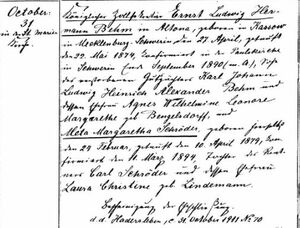 October
31
in d. St. Marien
Königlicher Zollsekretär Ernst Ludwig Her-
mann Behm in Altona, geboren in Rassow
in Mecklenburg-Schwerin den 27 April, getauft
den 22. Mai 1874, confirmirt in d. Paulskirche
in Schwerin den September 1890 (m. A.), Sohn
des verstorbenen Karl Johann
Ludwig Heinrich Alexander Behm und
dessen Ehefrau Agnes Wilhelmine Leonore
Margarethe geb. Bengelsdorff, und
Meta Margaretha Schröder, geboren
den 24 Februar, getauft den 10. April 1879, con-
firmirt den 11. März 1894, Tochter des Rent-
ners Carl Schröder und dessen Ehefrau
Laura Christine geb. Lindemann.
Bescheinigung der Eheschließung
d. d. Hadersleben, d. 31. October 1911 No 70